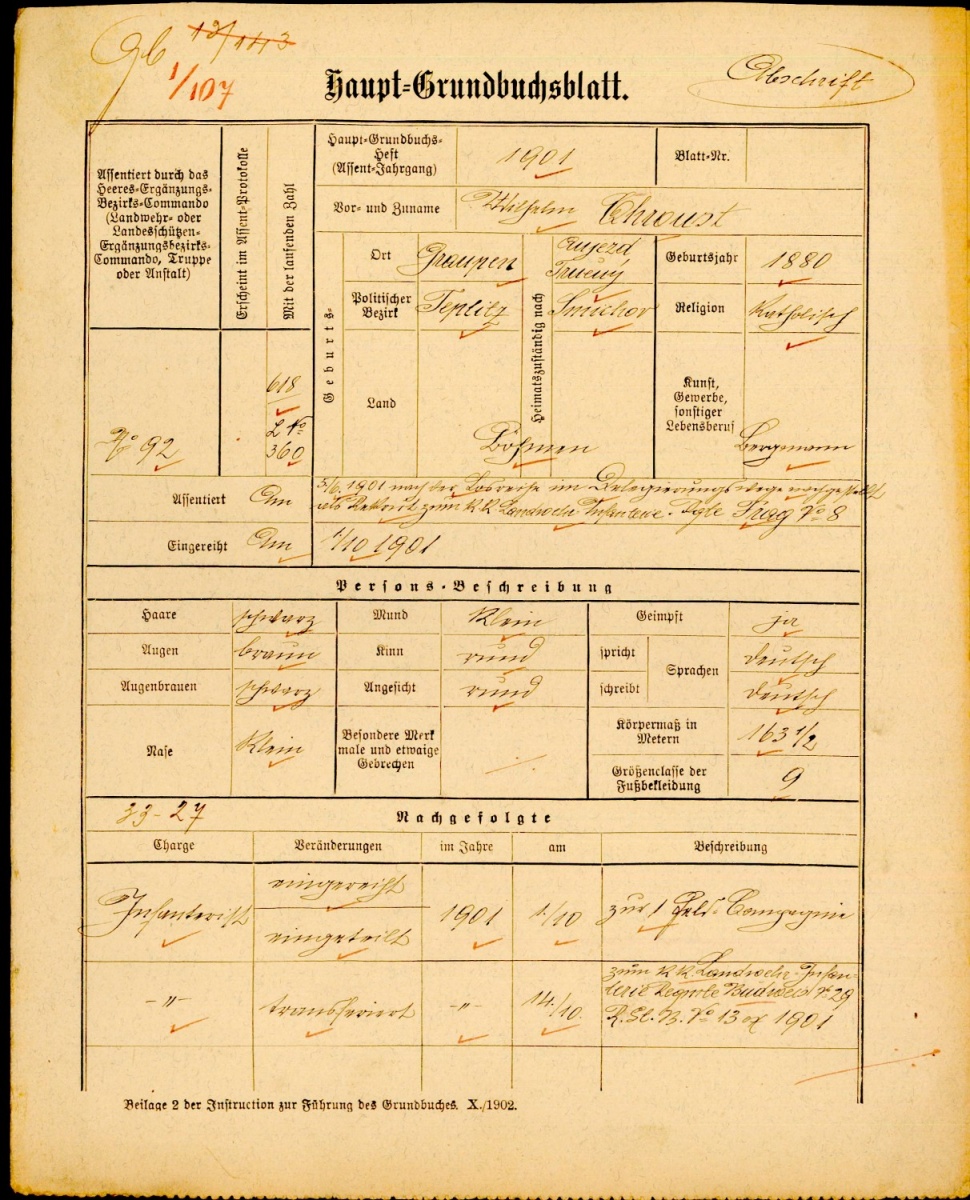 Gb 13/113
1/107
Haupt=Grundbuchsblatt.
Abschrift
Assentiert durch das
Heeres=Ergänzungs=
Bezirks=Commando
(Landwehr= oder
Landesschützen=
Ergänzungsbezirks=
Commando, Truppe
oder Anstalt)
Erscheint im Assent=Protokolle
Mit der laufenden Zahl
No 92
618
L No
360
Haupt=Grundbuchs=
Heft
(Assent=Jahrgang)
1901
Blatt=Nr.
Vor= und Zuname
Wilhelm Chroust
Geburts=
Ort
Graupen
Politischer
Bezirk
Teplitz
Land
Böhmen
Heimatszuständig nach
Aujezd
Smichov
Geburtsjahr
1880
Religion
Katholisch
Kunst,
Gewerbe,
sonstiger
Lebensberuf
Bergmann
Assentiert Am
5./6. 1901 nach der Losreihe im Delegierungswege
als Rekrut zum k.k. Landwehr Infanterie Rgte Prag No 8
Eingereiht Am 1/10 1901
Persons=Beschreibung
Haare schwarz Mund klein Geimpft ja
Augen braun Kinn rund spricht Sprachen deutsch
Augenbrauen schwarz Angesicht rund schreibt deutsch
Nase klein
Besondere Merk
male und etwaige
Gebrechen
Körpermaß in
Metern
163 1/2
Größenclasse der
Fußbekleidung
9
33-27
Nachgefolgte
Charge Veränderungen im Jahre am Beschreibung
Infanterist
eingereiht
eingeteilt
1901 1./10 zur 1 Feld=Compagnie
-"- transferiert -"- 14./10.
zum k.k. Landwehr=Infan=
terie Regmte Budweis No 29
R. St. B. No 13 ex 1901
Beilage 2 der Instruction zur Führung des Grundbuches. X./1902.